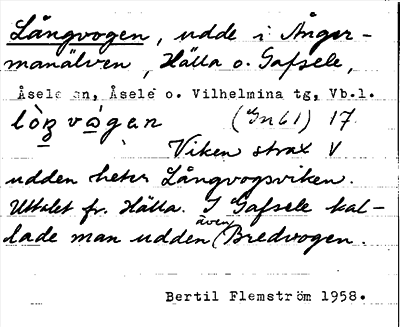 Långvogen, udde i Ånger-
manälven, Hälla o. Gafsele,
Åsele sn, Åsele o. Vilhelmina tg, Vb.l.
lòŋvàgen (Gn61) 17.
Viken strax V
udden heter Långvogsviken.
Uttalet fr. Hälla. I Gafsele kal-
lade man udden även Bredvogen.
Bertil Flemström 1958.